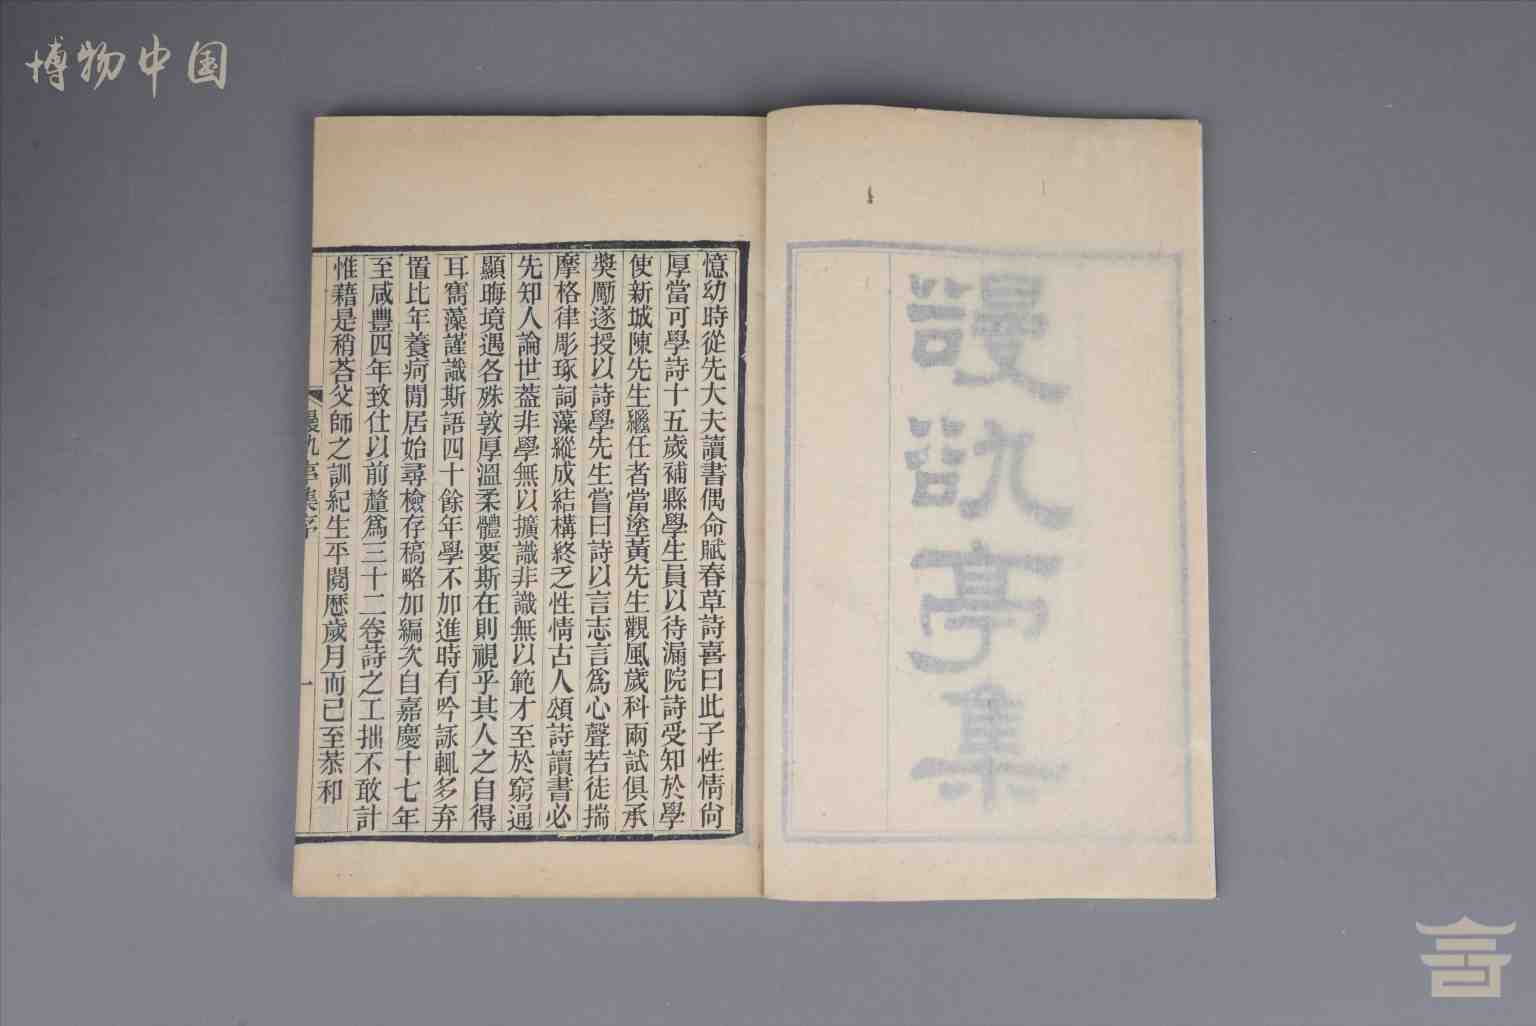 博物中国
䜱䜪亭集
憶幼時從先大夫讀書偶命賦春草詩喜曰此子性情尙
厚當可學詩十五歲補縣學生員以待漏院詩受知於學
使新城陳先生繼任者當塗黃先生觀風歲科兩試俱承
奬勵遂授以詩學先生嘗曰詩以言志言爲心聲若徒揣
摩格律彫琢詞藻縱成結構終乏性情古人頌詩讀書必
先知人論世葢非學無以擴識非識無以範才至於窮通
顯晦境遇各殊敦厚溫柔體要斯在則視乎其人之自得
耳寯藻謹識斯語四十餘年學不加進時有吟詠輒多弃
置比年養疴閒居始尋檢存稿略加編次自嘉慶十七年
至咸豐四年致仕以前釐爲三十二卷詩之工拙不敢計
惟藉是稍荅父師之訓紀生平閱歷歲月而已至恭和
亭集序
一